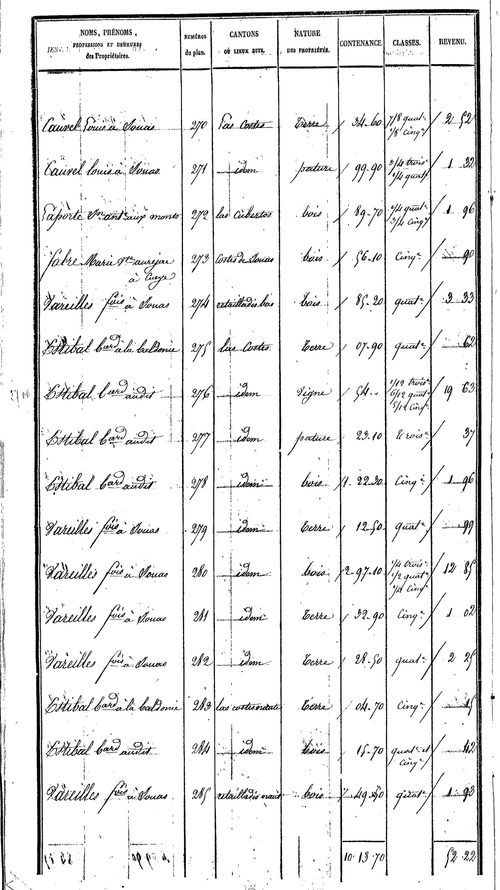 NOMS, PRÉNOMS, NUMÉROS CANTONS NATURE CONTENANCE. CLASSES. REVENU.
PROFESSIONS ET DEMEURES du plan. OÙ LIEUX DITS. DES PROPRIÉTÉS.
des Propriétaires.
Cauvel Louis à Souas 270 Las Costes Terre 34.60 7/8 quat. 1/8 cinq. 2 52
Cauvel Louis à Souas 271 idem pature 99.90 3/4 trois 1/4 quat. 1 32
Laporte aux monts 272 las Cubertes bois 89.70 1/4 quat. 3/4 cinq. 1 96
Fabre Marie à 273 Costes de Souas bois 56.10 Cinq. 90
Vareilles fois à Souas 274 retailladis bas bois 85.20 quat. 3 33
Estibal Bard à la baldonie 275 las Costes Terre 07.90 quat. 62
Estibal Bard audit 276 idem Vigne 54 1/12 trois 6/12 quat. 5/12 cinq. 19 63
Estibal Bard audit 277 idem pature 23.10 trois. 37
Estibal Bard audit 278 idem bois 1.22.30 Cinq. 1 96
Vareilles fois à Souas 279 idem Terre 12.50 quat. 99
Vareilles fois à Souas 280 idem bois 2.97.10 1/4 trois 1/2 quat. 1/4 cinq. 12 85
Vareilles fois à Souas 281 idem Terre 32.90 Cinq. 1 02
Vareilles fois à Souas 282 idem Terre 28.50 quat. 2 25
Estibal Bard à la baldonie 283 las costes Terre 04.70 Cinq. 15
Estibal Bard audit 284 idem bois 15.70 quat. et cinq. 42
Vareilles fois à Souas 285 retailladis haut bois 49.50 quat. 1 93
10.13.70 52.22